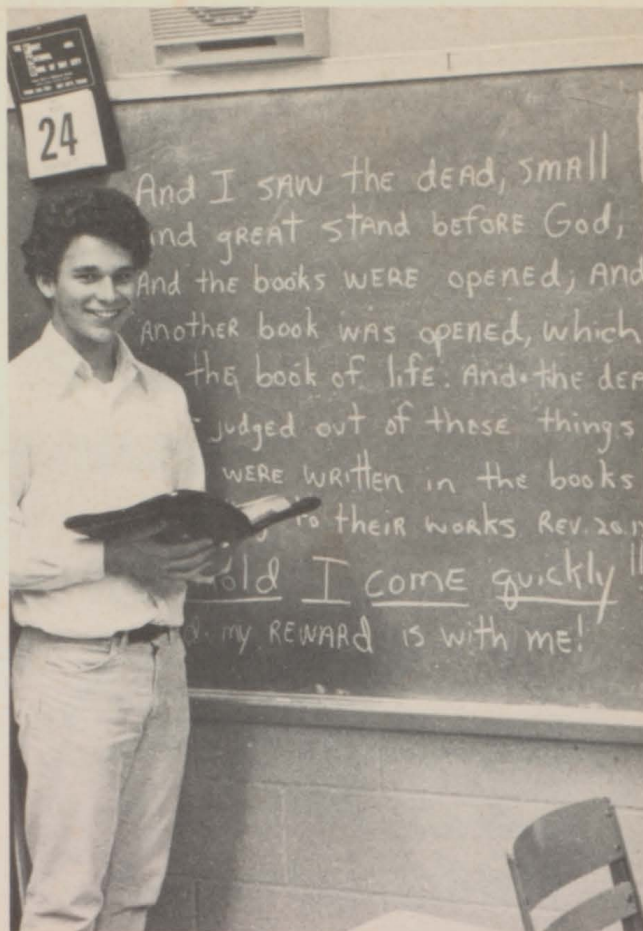 24
And I SAW the dEAd, SMAll
and gREAT stand before God,
And the books WERE opened; And
ANOTHER book WAS opened, which
the book of life: And the dEA
judged out of these things
WERE WRITTEN in the books
to theiR WORKS REV. 20.1
old I COME quickly
my REWARD is with me!